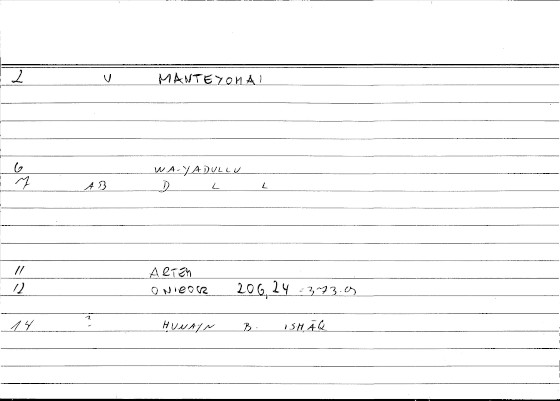 2 V MANTEYOMAI
6 WA-YADULLU
7 AB D L L
11 ARTEM
12 ONIROCR 206,24 = 373.03
14 ? HUNAYN B. ISHĀQ